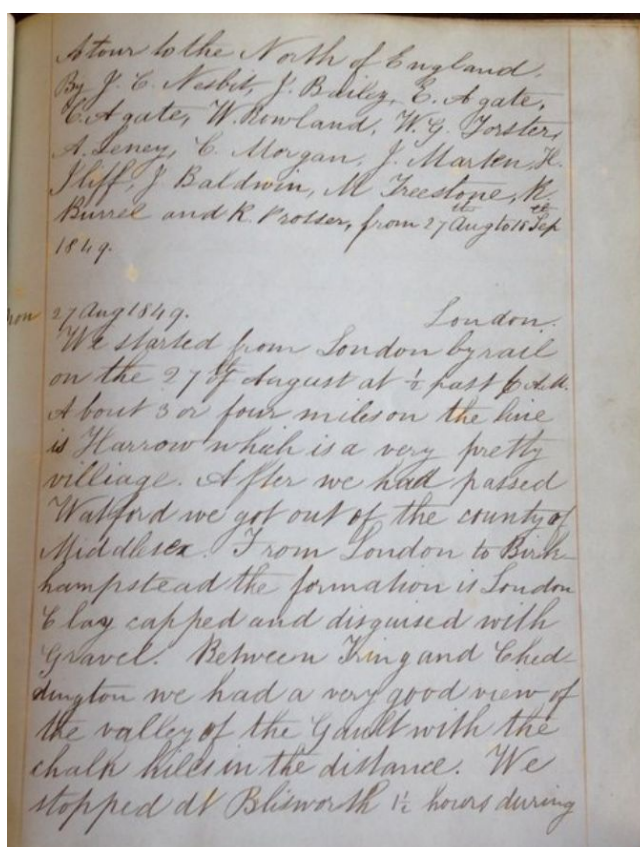 A tour to the North of England.
By J. C. Nesbit, J. Bailey, E. Agate,
C. Agate, W. Rowland, W. G. Forster,
A. Leney, C. Morgan, J. Marten, H.
Iliff, J Baldwin, M Freestone, R.
Burrel and R. Prosser, from 27th Aug to 18th Sep
1849.
27 Aug 1849. London.
We started from London by rail
on the 27th of August at ½ past 6 A.M.
About 3 or four miles on the line
is Harrow which is a very pretty
villiage. After we had passed
Watford we got out of the county of
Middlesex. From London to Birk-
hampstead the formation is London
Clay capped and disguised with
Gravel. Between Tring and Ched-
dington we had a very good view of
the valley of the Gault with the
chalk hills in the distance. We
stopped at Blisworth 1½ hours during